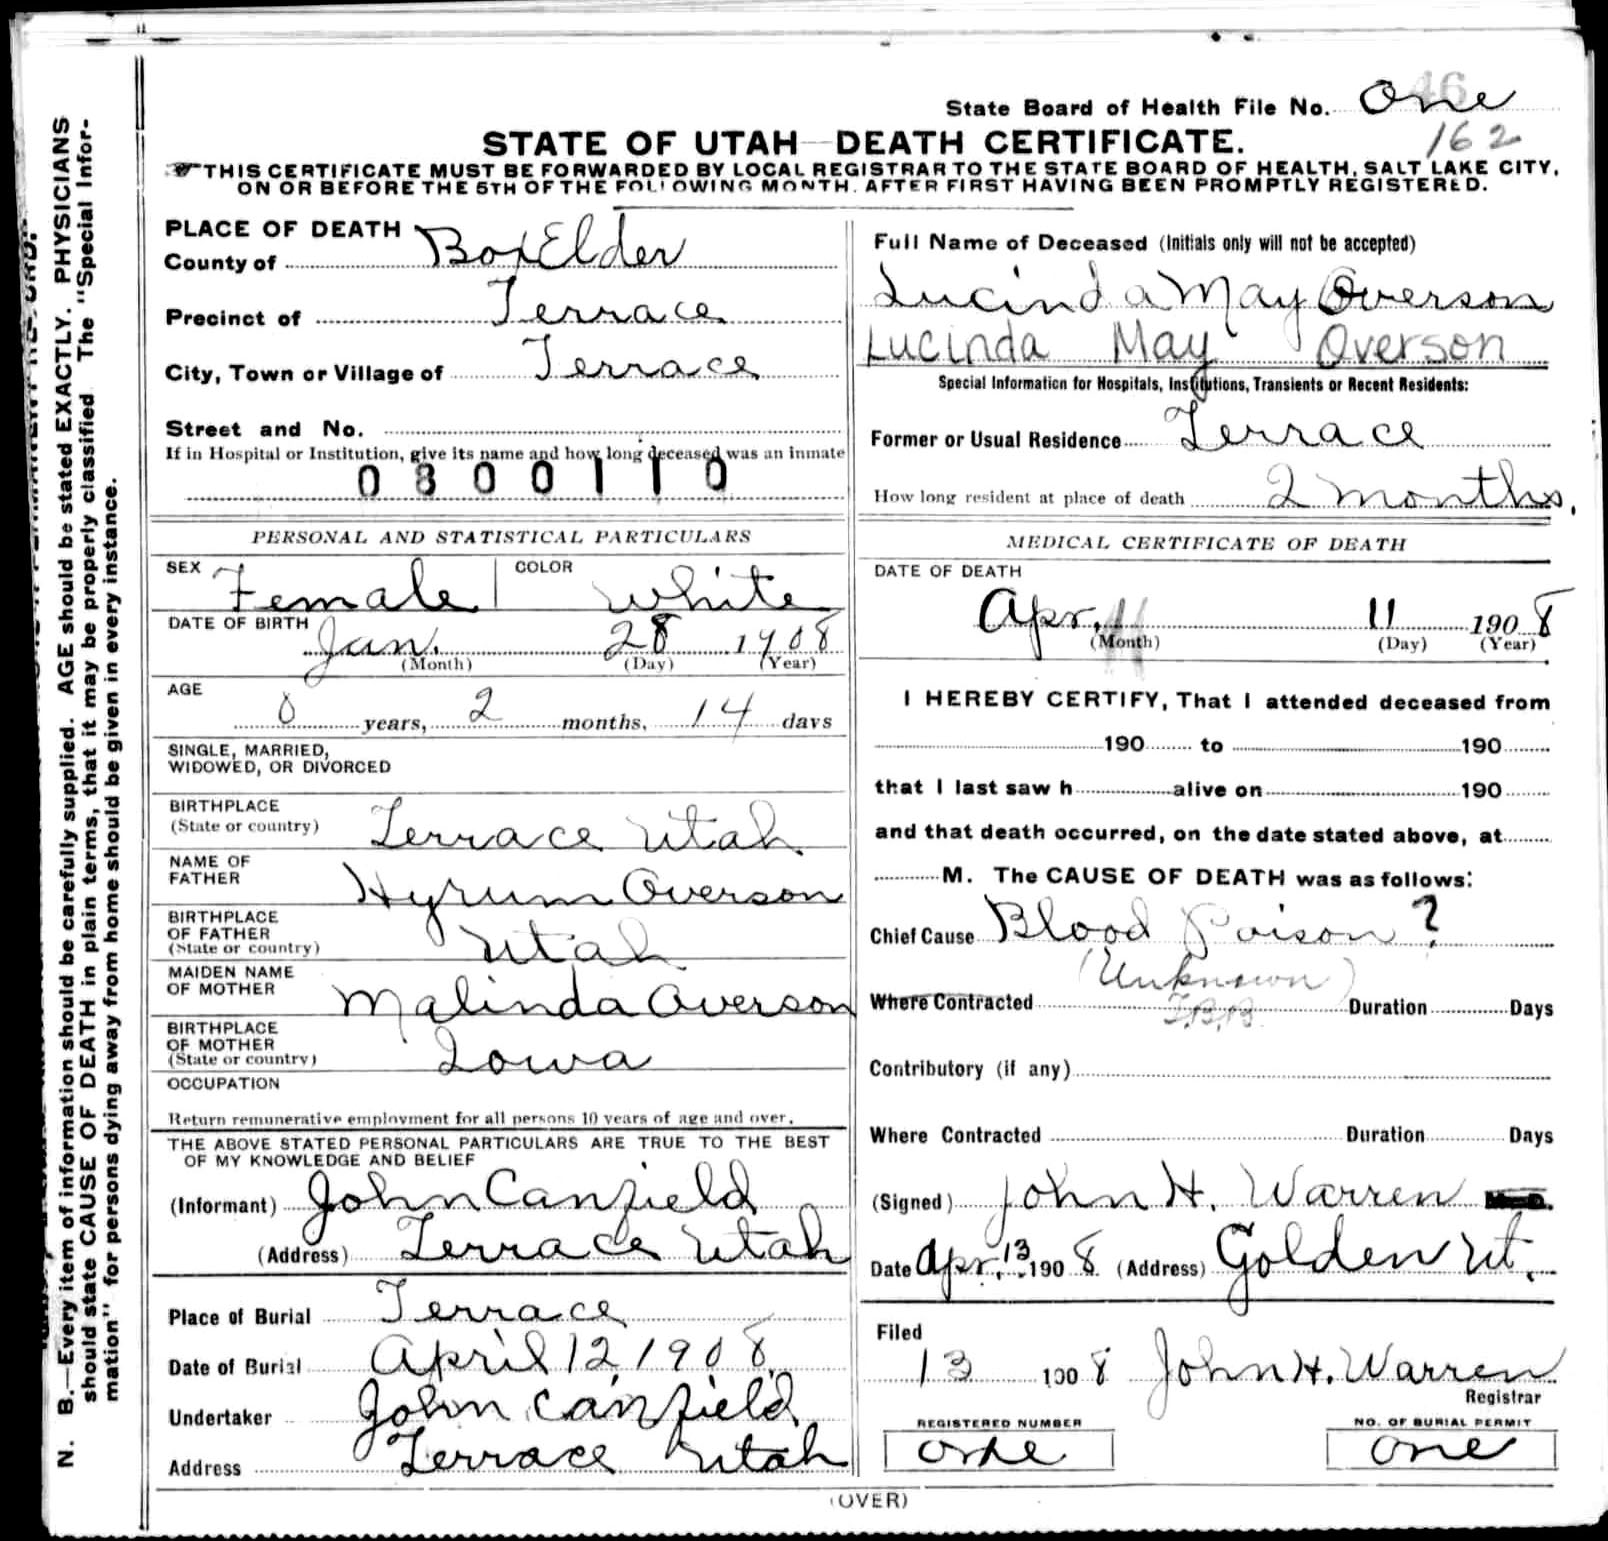 State Board of Health File No. One
46
162
STATE OF UTAH—DEATH CERTIFICATE.
THIS CERTIFICATE MUST BE FORWARDED BY LOCAL REGISTRAR TO THE STATE BOARD OF HEALTH, SALT LAKE CITY,
ON OR BEFORE THE 5TH OF THE FOLLOWING MONTH, AFTER FIRST HAVING BEEN PROMPTLY REGISTERED.
N. B.—Every item of information should be carefully supplied. AGE should be stated EXACTLY. PHYSICIANS
should state CAUSE OF DEATH in plain terms, that it may be properly classified. The "Special Infor-
mation" for persons dying away from home should be given in every instance.
PLACE OF DEATH
County of Box Elder
Precinct of Terrace
City, Town or Village of Terrace
Street and No.
If in Hospital or Institution, give its name and how long deceased was an inmate
0800110
PERSONAL AND STATISTICAL PARTICULARS
SEX Female COLOR White
DATE OF BIRTH Jan. 28 1908
(Month) (Day) (Year)
AGE
0 years, 2 months, 14 days
SINGLE, MARRIED,
WIDOWED, OR DIVORCED
BIRTHPLACE
(State or country) Terrace Utah
NAME OF
FATHER Hyrum Overson
BIRTHPLACE
OF FATHER
(State or country) Utah
MAIDEN NAME
OF MOTHER Malinda Overson
BIRTHPLACE
OF MOTHER
(State or country) Iowa
OCCUPATION
Return remunerative employment for all persons 10 years of age and over.
THE ABOVE STATED PERSONAL PARTICULARS ARE TRUE TO THE BEST
OF MY KNOWLEDGE AND BELIEF
(Informant) John Canfield
(Address) Terrace Utah
Place of Burial Terrace
Date of Burial April 12, 1908
Undertaker John Canfield
Address Terrace Utah
Full Name of Deceased (Initials only will not be accepted)
Lucinda May Overson
Lucinda May Overson
Special Information for Hospitals, Institutions, Transients or Recent Residents:
Former or Usual Residence Terrace
How long resident at place of death 2 months.
MEDICAL CERTIFICATE OF DEATH
DATE OF DEATH
Apr. 11 1908
(Month) (Day) (Year)
I HEREBY CERTIFY, That I attended deceased from
190 to 190
that I last saw h alive on 190
and that death occurred, on the date stated above, at
M. The CAUSE OF DEATH was as follows:
Chief Cause Blood Poison ?
(Unknown)
Where Contracted Duration Days
Contributory (if any)
Where Contracted Duration Days
(Signed) John H. Warren
Date Apr. 13 1908 (Address) Golden Ut.
Filed
13 1908 John H. Warren
Registrar
REGISTERED NUMBER NO. OF BURIAL PERMIT
One One
(OVER)